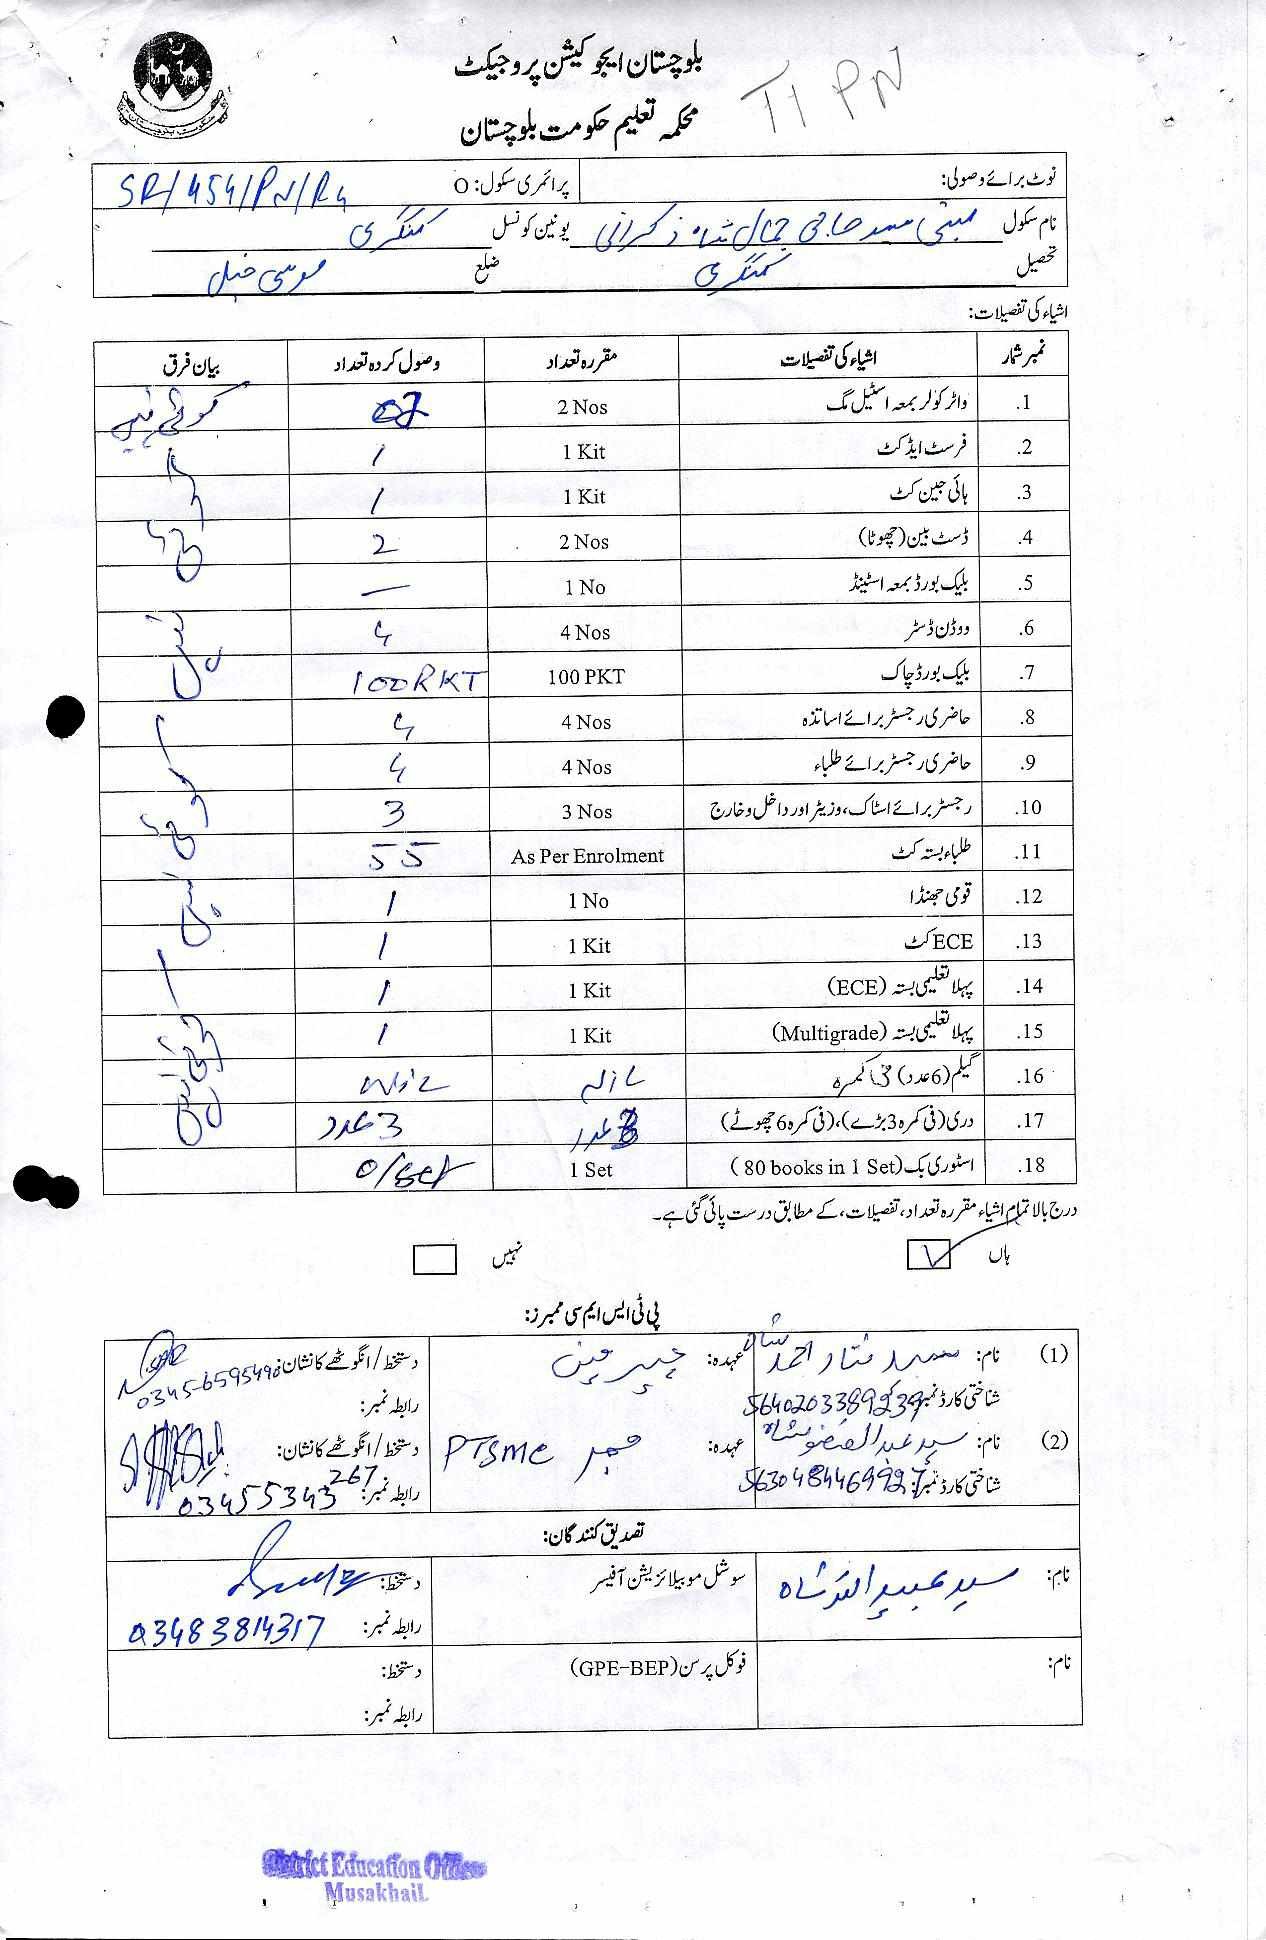 بلوچستان ایجوکیشن پروجیکٹ
محکمہ تعلیم حکومت بلوچستان
T1 PN
نوٹ برائے وصولی: پرائمری سکول: O SR/454/PN/R4
نام سکول حاجی جمال شاہ یونین کونسل کنگری
تحصیل کنگری ضلع موسیٰ خیل
اشیاء کی تفصیلات:
نمبر شمار اشیاء کی تفصیلات مقررہ تعداد وصول کردہ تعداد بیان فرق
1. واٹر کولر بمعہ اسٹیل مگ 2 Nos کوئی نہیں
2. فرسٹ ایڈ کٹ 1 Kit 1
3. ہائی جین کٹ 1 Kit 1
4. ڈسٹ بین (چھوٹا) 2 Nos 2
5. بلیک بورڈ بمعہ اسٹینڈ 1 No —
6. ووڈن ڈسٹر 4 Nos 4
7. بلیک بورڈ چاک 100 PKT 100 PKT
8. حاضری رجسٹر برائے اساتذہ 4 Nos 4
9. حاضری رجسٹر برائے طلباء 4 Nos 4
10. رجسٹر برائے اسٹاک، وزیٹر اور داخل و خارج 3 Nos 3
11. طلباء بستہ کٹ As Per Enrolment 55
12. قومی جھنڈا 1 No 1
13. ECE کٹ 1 Kit 1
14. پہلا تعلیمی بستہ (ECE) 1 Kit 1
15. پہلا تعلیمی بستہ (Multigrade) 1 Kit 1
16. گیلم (6 عدد) فی کمرہ
17. دری (فی کمرہ 3 بڑے)، (فی کمرہ 6 چھوٹے) 3 عدد 3 عدد
18. اسٹوری بک (80 books in 1 Set) 1 Set 0/set
درج بالا تمام اشیاء مقررہ تعداد، تفصیلات، کے مطابق درست پائی گئی ہے۔
ہاں نہیں
پی ٹی ایس ایم سی ممبرز:
(1) نام: سید احمد شاہ عہدہ: چیئرمین دستخط/انگوٹھے کا نشان:
شناختی کارڈ نمبر: 5640203389239 رابطہ نمبر: 0345-6595490
(2) نام: سید شاہ عہدہ: ممبر PTSMC دستخط/انگوٹھے کا نشان:
شناختی کارڈ نمبر: 5630484469927 رابطہ نمبر: 03455343267
تصدیق کنندگان:
نام: سید عبید اللہ شاہ سوشل موبیلائزیشن آفیسر دستخط:
رابطہ نمبر: 03483814317
نام: فوکل پرسن (GPE-BEP) دستخط:
رابطہ نمبر:
District Education Officer
Musakhail